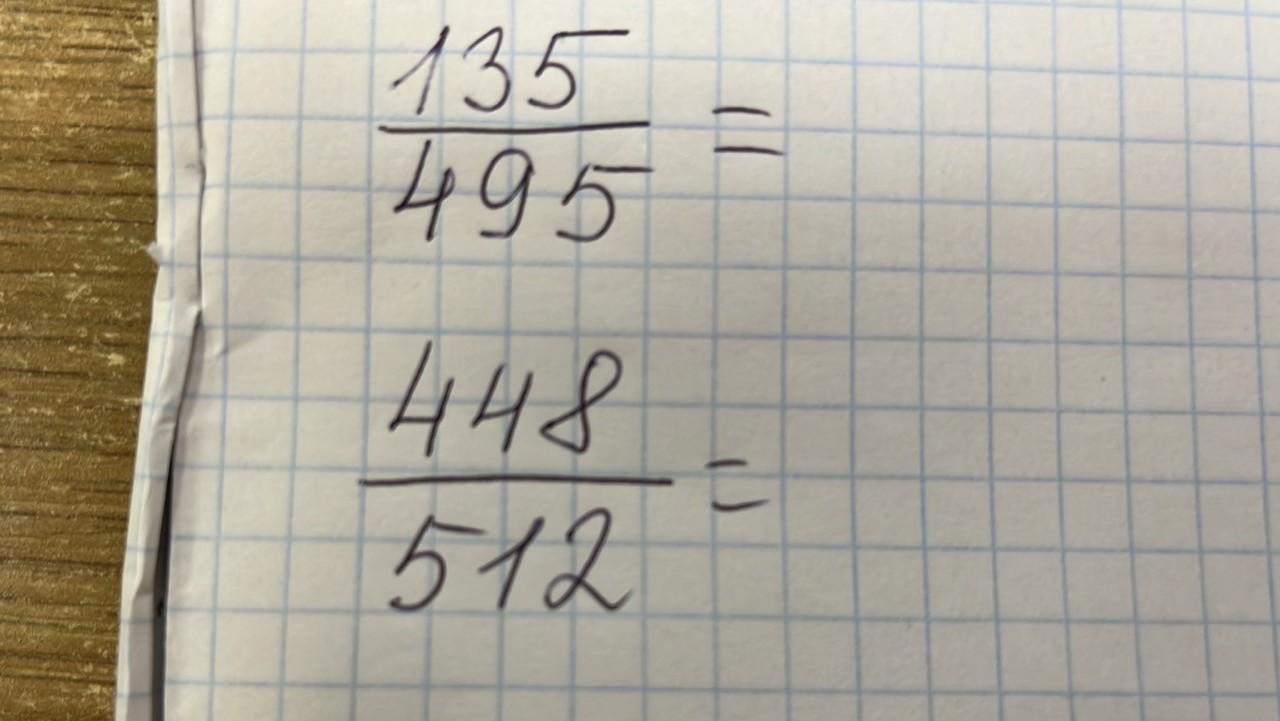 135
495 =
448
512 =